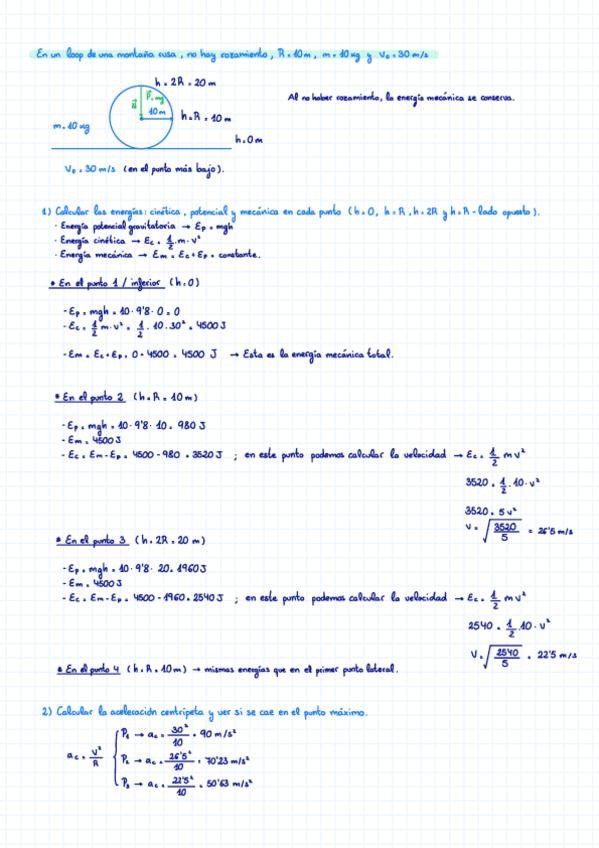 En un loop de una montaña rusa, no hay rozamiento, R = 10 m, m = 10 kg y v₀ = 30 m/s
h = 2R = 20 m
P = mg
N
10 m
h = R = 10 m
m = 10 kg
h = 0 m
Al no haber rozamiento, la energía mecánica se conserva.
V₀ = 30 m/s (en el punto más bajo).
1) Calcular las energías: cinética, potencial y mecánica en cada punto (h = 0, h = R, h = 2R y h = R - lado opuesto).
· Energía potencial gravitatoria → Ep = mgh
· Energía cinética → Ec = 1/2 · m · v²
· Energía mecánica → Em = Ec + Ep = constante.
• En el punto 1 / inferior (h = 0)
- Ep = mgh = 10 · 9'8 · 0 = 0
- Ec = 1/2 m · v² = 1/2 · 10 · 30² = 4500 J
- Em = Ec + Ep = 0 + 4500 = 4500 J → Esta es la energía mecánica total.
• En el punto 2 (h = R = 10 m)
- Ep = mgh = 10 · 9'8 · 10 = 980 J
- Em = 4500 J
- Ec = Em - Ep = 4500 - 980 = 3520 J ; en este punto podemos calcular la velocidad → Ec = 1/2 m v²
3520 = 1/2 · 10 · v²
3520 = 5 v²
V = √(3520/5) = 26'5 m/s
• En el punto 3 (h = 2R = 20 m)
- Ep = mgh = 10 · 9'8 · 20 = 1960 J
- Em = 4500 J
- Ec = Em - Ep = 4500 - 1960 = 2540 J ; en este punto podemos calcular la velocidad → Ec = 1/2 m v²
2540 = 1/2 10 · v²
V = √(2540/5) = 22'5 m/s
• En el punto 4 (h = R = 10 m) → mismas energías que en el primer punto lateral.
2) Calcular la aceleración centrípeta y ver si se cae en el punto máximo.
ac = v²/R
P₁ → ac = 30²/10 = 90 m/s²
P₂ → ac = 26'5²/10 = 70'23 m/s²
P₃ → ac = 22'5²/10 = 50'63 m/s²